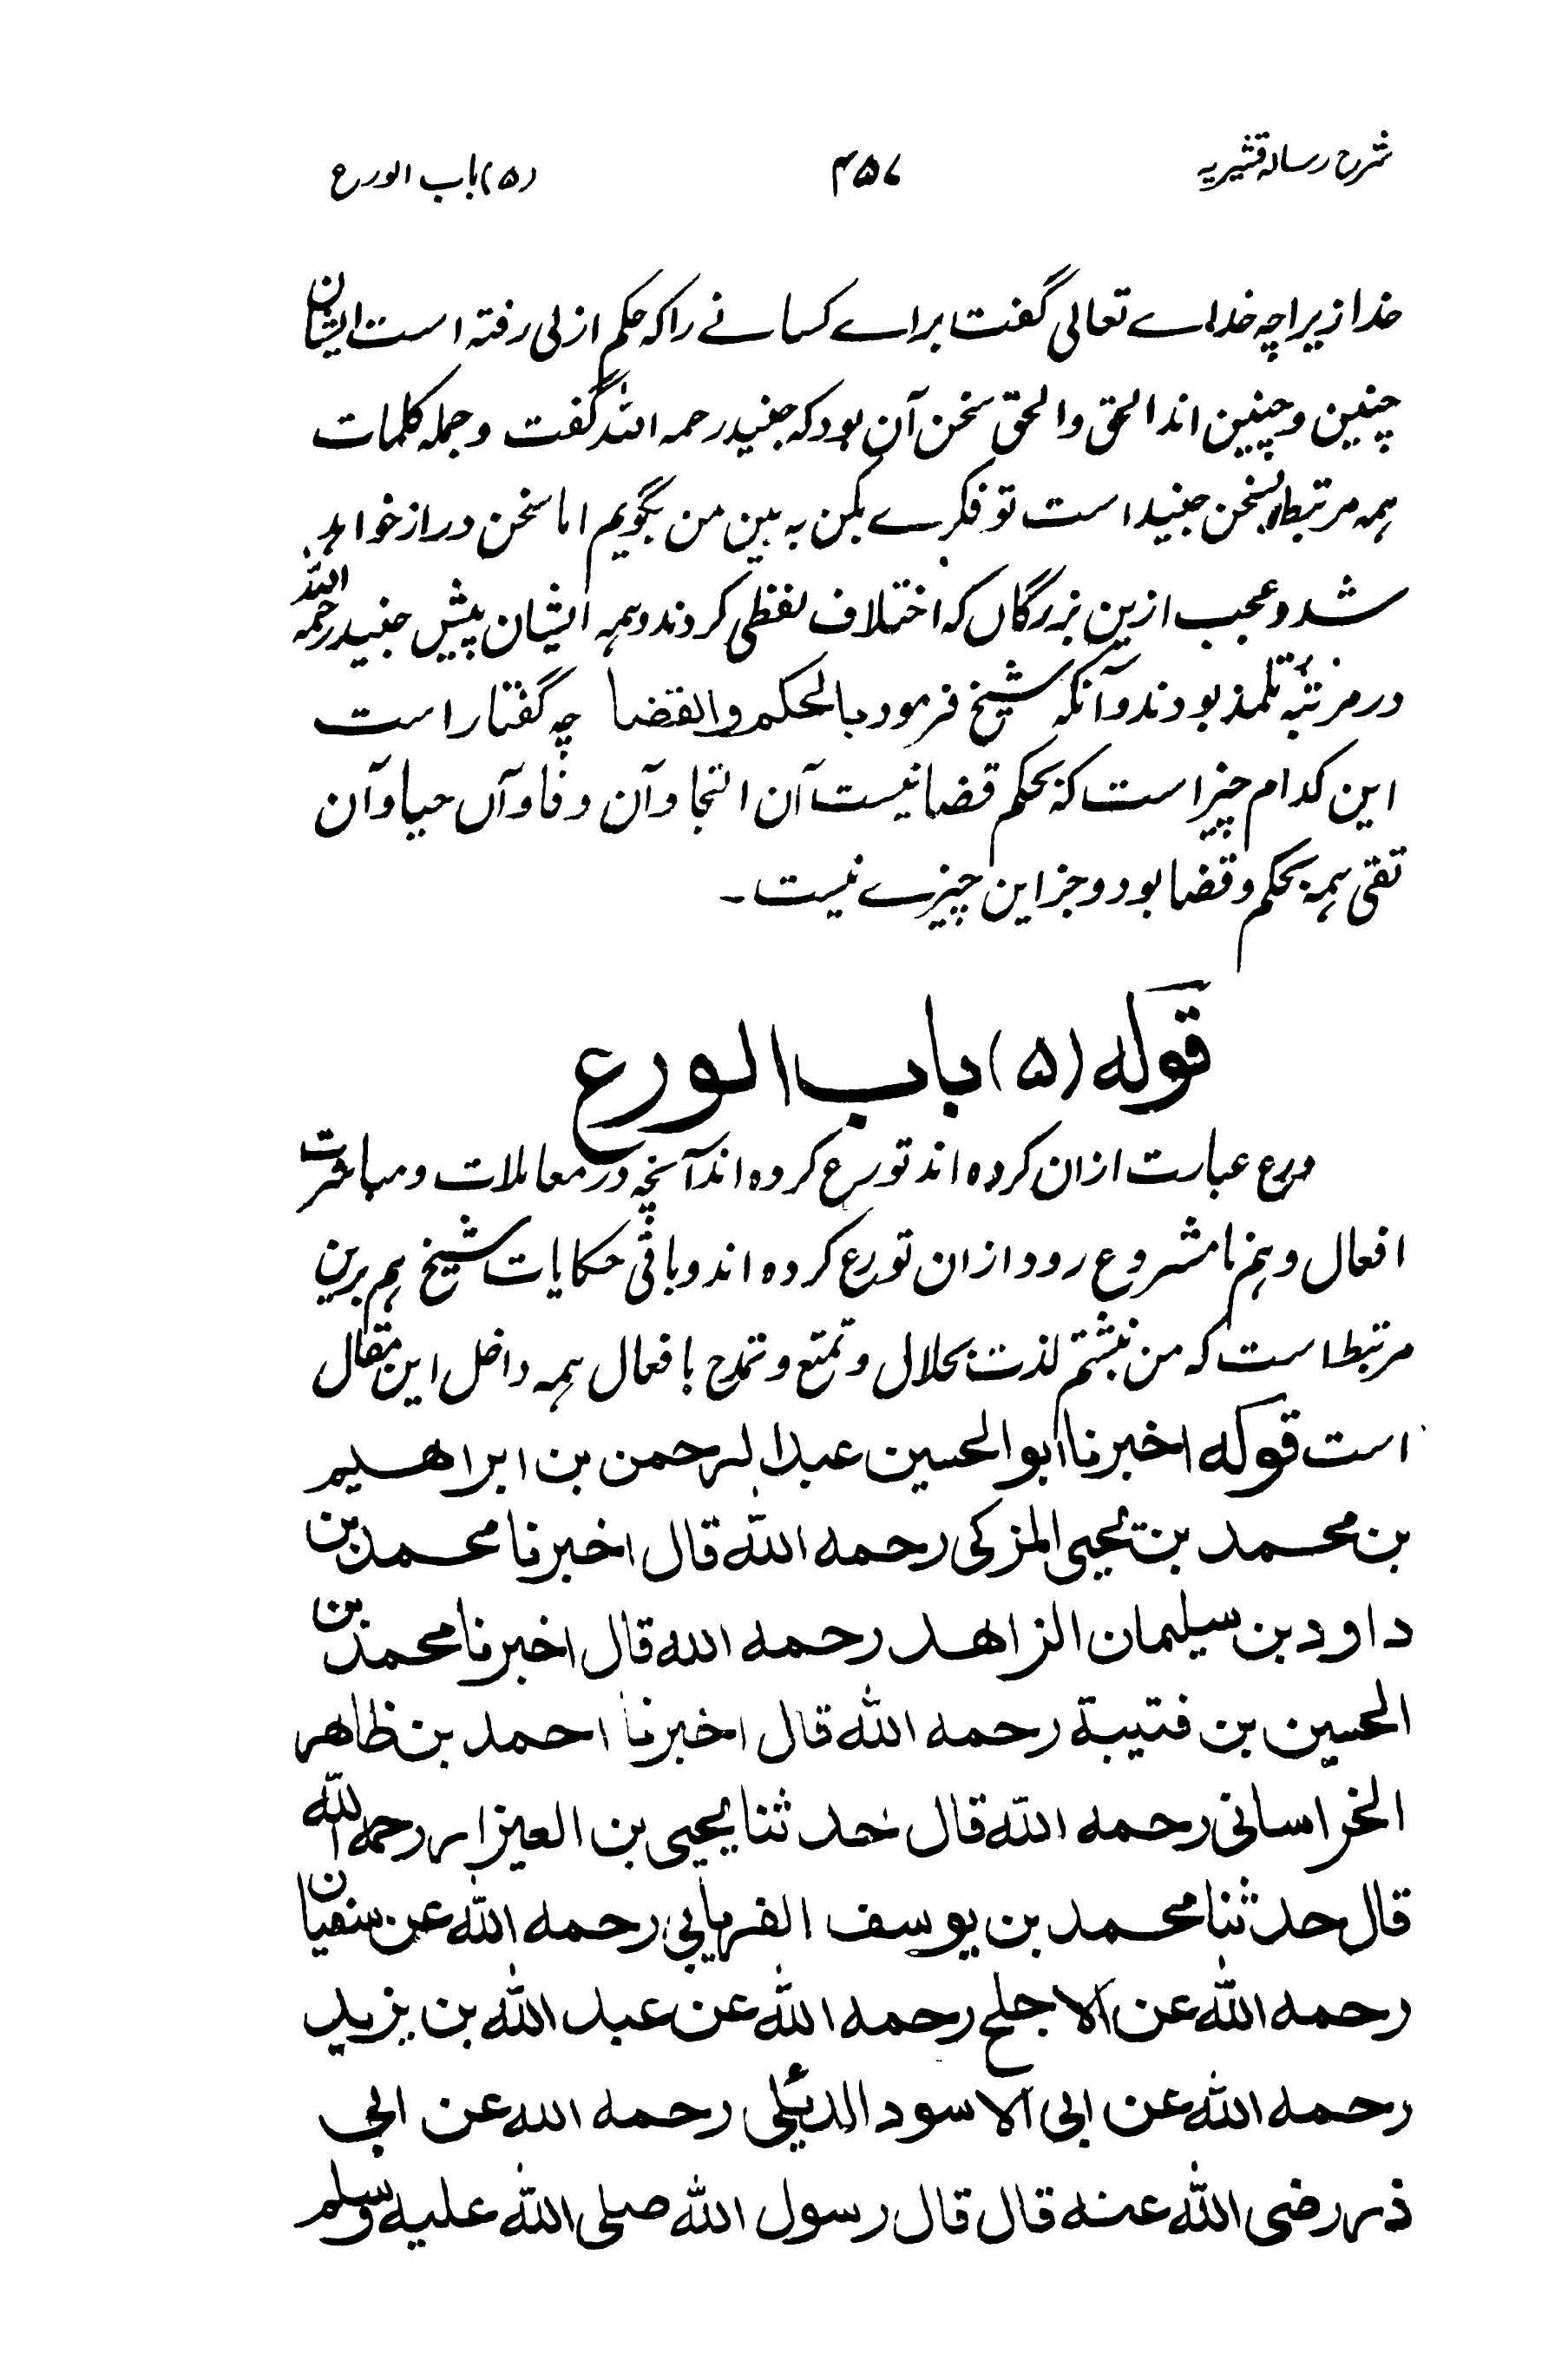 شرح رسالہ قشیریہ ۴۵۷ (۵) باب الورع
خدا زیراچہ خداے تعالی گفت براے کسانے را کہ حکم ازلی رفتہ است ایشان
چنین و چنین اند الحق والحق سخن آن بود کہ جنید رحمہ اللہ گفت و جملہ کلمات
ہمہ مرتبط بسخن جنید است تو فکرے بکن بہ بین من بگویم اما سخن دراز خواہد
شد و عجب ازین بزرگاں کہ اختلاف لفظی کردند و ہمہ ایشان پیش جنید رحمہ اللہ
در مرتبۂ تلمذ بودند و آنکہ شیخ فرمود بالحکم والقضا چہ گفتار است
این کدام چیز است کہ بحکم قضا نیست آن التجا و آن وفا و آں حیا و آن
تقی ہمہ بحکم و قضا بود و جز این چیزے نیست۔
قولہ (۵) باب الورع
ورع عبارت ازان کردہ اند تورع کردہ اند آنچہ در معاملات و مباشرت
افعال و ہم نامشروع رود ازان تورع کردہ اند و باقی حکایات شیخ ہم برین
مرتبط است کہ من نبشتم لذت بحلال و تمتع و تمدح بافعال ہمہ داخل این مقال
است قولہ اخبرنا ابوالحسین عبدالرحمن بن ابراهیم
بن محمد بن یحیی المزکی رحمه الله قال اخبرنا محمد بن
داود بن سلیمان الزاهد رحمه الله قال اخبرنا محمد بن
الحسین بن قتیبة رحمه الله قال اخبرنا احمد بن طاهر
الخراسانی رحمه الله قال حدثنا یحیی بن العیزار رحمه الله
قال حدثنا محمد بن یوسف الفریابی رحمه الله عن سفیان
رحمه الله عن الاجلح رحمه الله عن عبد الله بن بزید
رحمه الله عن ابی الاسود الدیلی رحمه الله عن ابی
ذر رضی الله عنه قال قال رسول الله صلی الله علیه وسلم